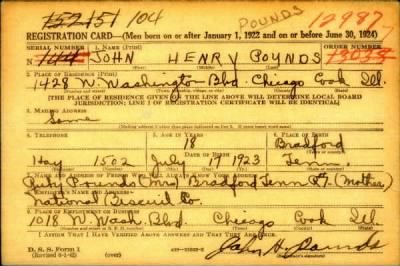 152151 104 POUNDS 12987
REGISTRATION CARD—(Men born on or after January 1, 1922 and on or before June 30, 1924)
SERIAL NUMBER 1. NAME (Print) ORDER NUMBER
104 JOHN HENRY POUNDS 13033
2. PLACE OF RESIDENCE (Print)
1428 W. Washington Blvd. Chicago Cook Ill.
[THE PLACE OF RESIDENCE GIVEN ON THE LINE ABOVE WILL DETERMINE LOCAL BOARD
JURISDICTION; LINE 2 OF REGISTRATION CERTIFICATE WILL BE IDENTICAL]
3. MAILING ADDRESS
Same
4. TELEPHONE 5. AGE IN YEARS 6. PLACE OF BIRTH
18 Bradford
Hay 1502 July 19 1923 Tenn.
7. NAME AND ADDRESS OF PERSON WHO WILL ALWAYS KNOW YOUR ADDRESS
Pounds (Mrs) Bradford Tenn (Mother)
8. EMPLOYER'S NAME AND ADDRESS
National Biscuit Co.
9. PLACE OF EMPLOYMENT OR BUSINESS
1018 W. Wash. Blvd Chicago Cook Ill
I AFFIRM THAT I HAVE VERIFIED ABOVE ANSWERS AND THAT THEY ARE TRUE.
D. S. S. Form 1
(Revised 6-1-42) (over)
John H. Pounds